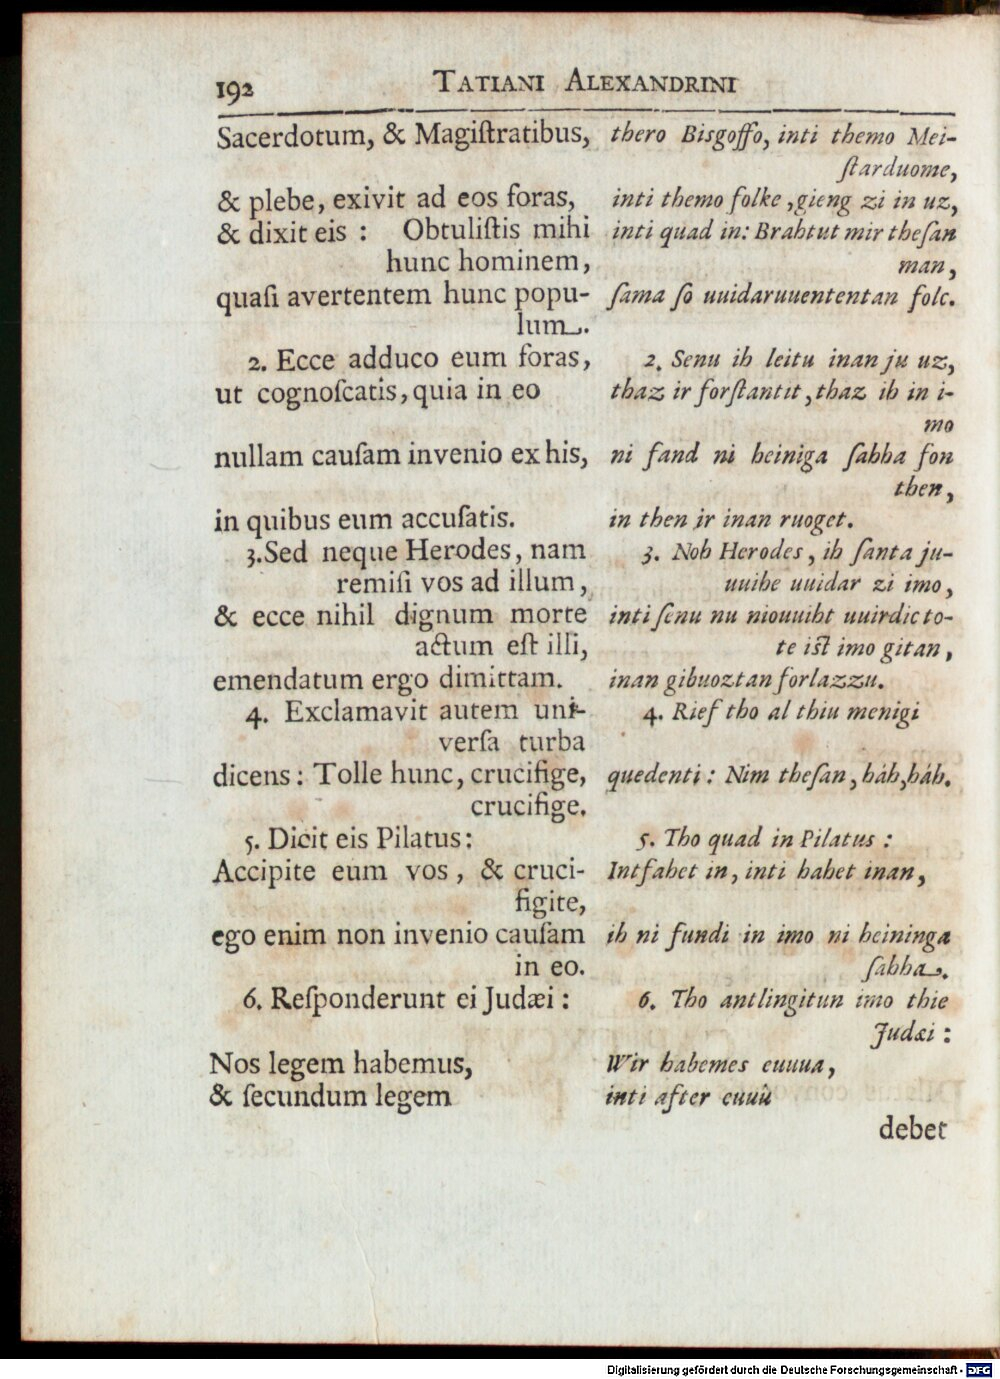 192 TATIANI ALEXANDRINI
Sacerdotum, & Magiſtratibus,
& plebe, exivit ad eos foras,
& dixit eis : Obtuliſtis mihi
hunc hominem,
quaſi avertentem hunc popu-
lum.
2. Ecce adduco eum foras,
ut cognoſcatis, quia in eo
nullam cauſam invenio ex his,
in quibus eum accuſatis.
3. Sed neque Herodes, nam
remiſi vos ad illum,
& ecce nihil dignum morte
actum eſt illi,
emendatum ergo dimittam.
4. Exclamavit autem uni-
verſa turba
dicens: Tolle hunc, crucifige,
crucifige.
5. Dicit eis Pilatus:
Accipite eum vos, & cruci-
figite,
ego enim non invenio cauſam
in eo.
6. Reſponderunt ei Judæi :
Nos legem habemus,
& ſecundum legem
thero Bisgoffo, inti themo Mei-
ſtarduome,
inti themo folke, gieng zi in uz,
inti quad in: Brahtut mir theſan
man,
ſama ſo uuidaruuententan folc.
2. Senu ih leitu inan ju uz,
thaz ir forſtantit, thaz ih in i-
mo
ni fand ni heiniga ſahha fon
then,
in then ir inan ruoget.
3. Noh Herodes, ih ſanta ju-
uuihe uuidar zi imo,
inti ſenu nu niouuiht uuirdic to-
te iſt imo gitan,
inan gibuoztan forlazzu.
4. Rief tho al thiu menigi
quedenti: Nim theſan, háh, háh.
5. Tho quad in Pilatus :
Intfahet in, inti hahet inan,
ih ni fundi in imo ni heininga
ſahha.
6. Tho antlingitun imo thie
Judæi :
Wir habemes euuua,
inti after euuù
debet
Digitalisierung gefördert durch die Deutsche Forschungsgemeinschaft - DFG